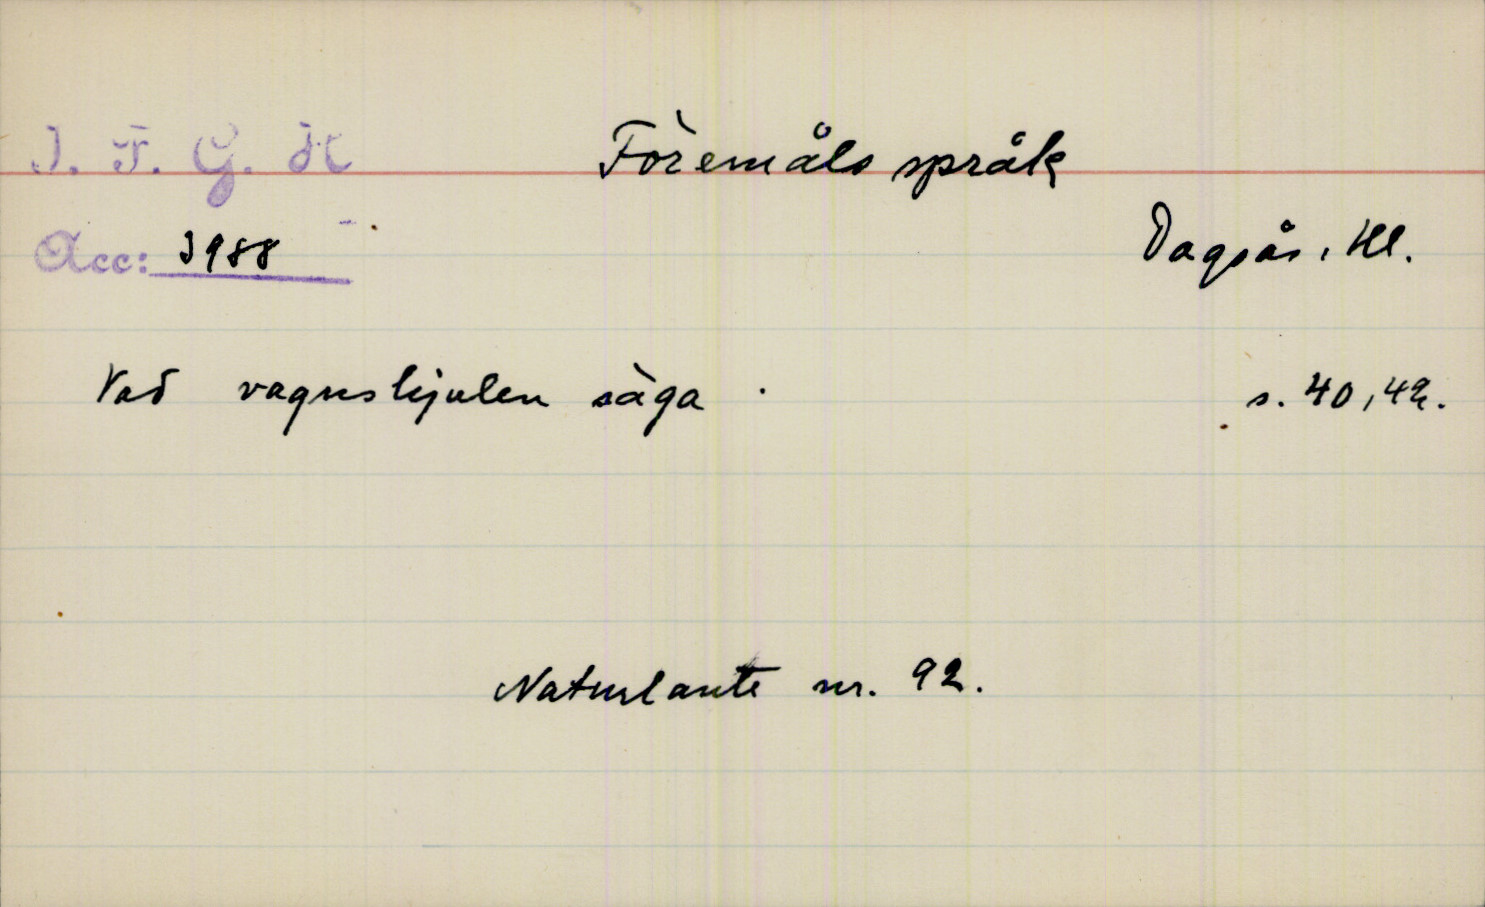 I. F. G. H
Föremåls språk
Acc: 3988
Dagsås, Hl.
Vad vagnshjulen säga. s. 40, 42.
Naturlaute nr. 92.